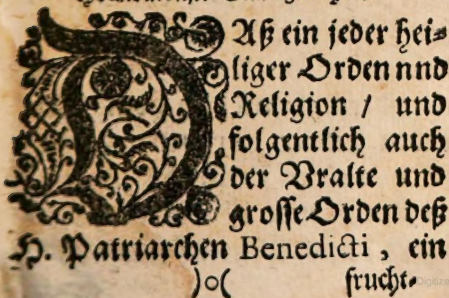 DAß ein jeder hei=
liger Orden nnd
Religion / und
folgentlich auch
der Vralte und
grosse Orden deß
H. Patriarchen Benedicti, ein
)o( frucht=
Digitize